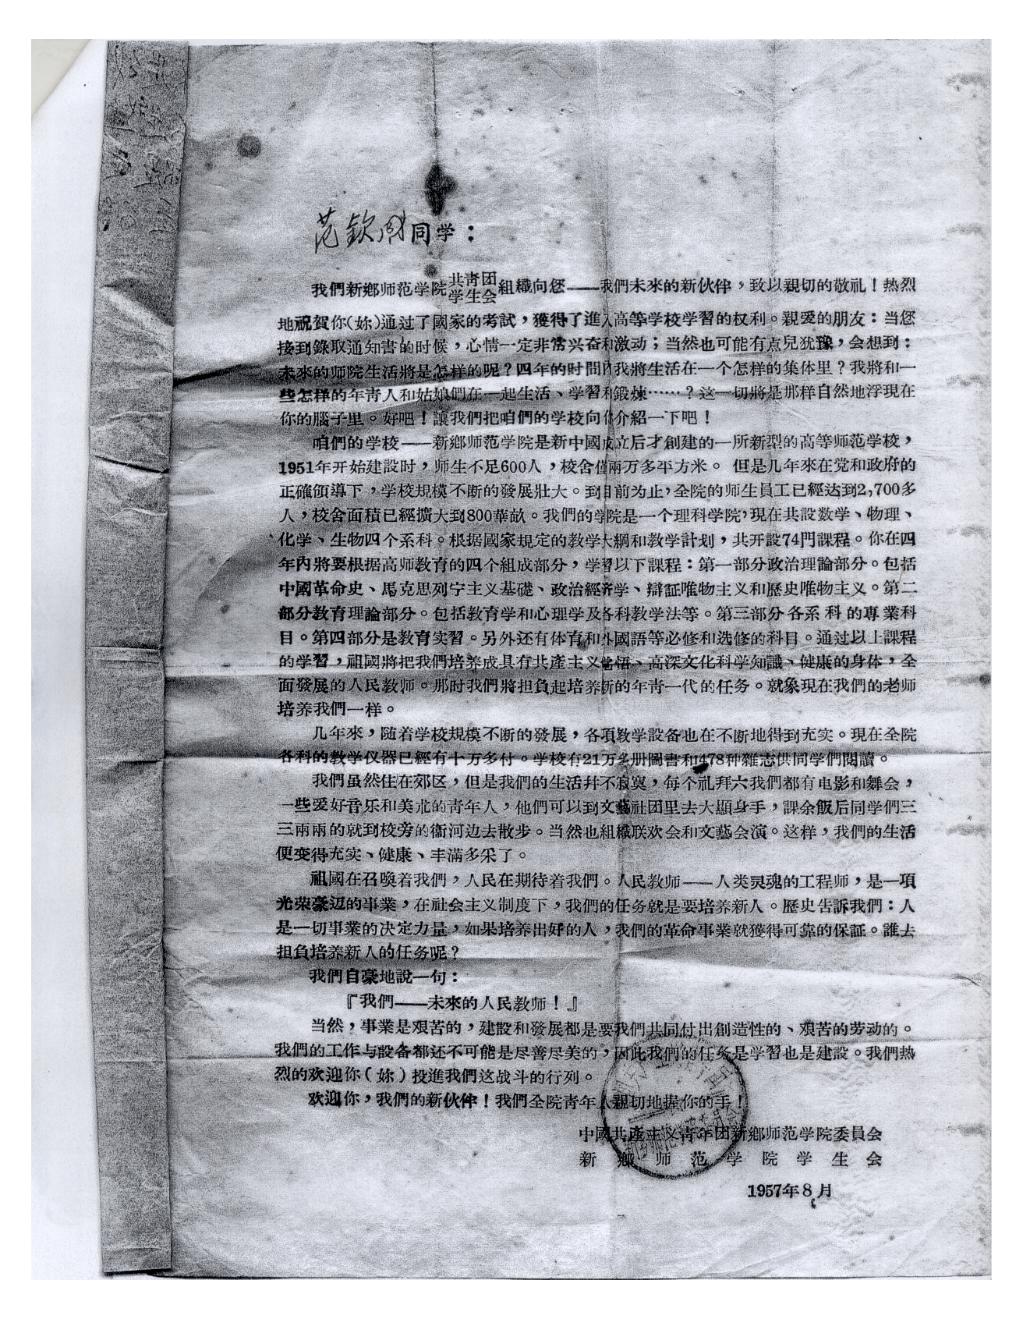 范欽冈同学：
我們新鄉师范学院共青团学生会組織向您——我們未來的新伙伴，致以親切的敬礼！热烈
地祝賀你(妳)通过了國家的考試，獲得了進入高等学校学習的权利。親爱的朋友：当您
接到錄取通知書的时候，心情一定非常兴奋和激动；当然也可能有点兒犹豫，会想到：
未來的师院生活將是怎样的呢？四年的时間內我將生活在一个怎样的集体里？我將和一
些怎样的年青人和姑娘們在一起生活、学習和鍛煉……？这一切將是那样自然地浮現在
你的腦子里。好吧！讓我們把咱們的学校向你介紹一下吧！
咱們的学校——新鄉师范学院是新中國成立后才創建的一所新型的高等师范学校，
1951年开始建設时，师生不足600人，校舍僅兩万多平方米。但是几年來在党和政府的
正確領導下，学校規模不断的發展壯大。到目前为止，全院的师生員工已經达到2,700多
人，校舍面積已經擴大到800華畝。我們的学院是一个理科学院，現在共設数学、物理、
化学、生物四个系科。根据國家規定的教学大綱和教学計划，共开設74門課程。你在四
年內將要根据高师教育的四个組成部分，学習以下課程：第一部分政治理論部分。包括
中國革命史、馬克思列宁主义基礎、政治經济学、辯証唯物主义和歷史唯物主义。第二
部分教育理論部分。包括教育学和心理学及各科教学法等。第三部分各系科的專業科
目。第四部分是教育实習。另外还有体育和外國語等必修和选修的科目。通过以上課程
的学習，祖國將把我們培养成具有共產主义覺悟、高深文化科学知識、健康的身体，全
面發展的人民教师。那时我們將担負起培养新的年青一代的任务。就象現在我們的老师
培养我們一样。
几年來，随着学校規模不断的發展，各項教学設备也在不断地得到充实。現在全院
各科的教学仪器已經有十万多付。学校有21万多册圖書和478种雜志供同学們閱讀。
我們虽然住在郊区，但是我們的生活幷不寂寞，每个礼拜六我們都有电影和舞会，
一些爱好音乐和美术的青年人，他們可以到文藝社团里去大顯身手，課余飯后同学們三
三兩兩的就到校旁的衞河边去散步。当然也組織联欢会和文藝会演。这样，我們的生活
便变得充实、健康、丰滿多采了。
祖國在召喚着我們，人民在期待着我們。人民教师——人类灵魂的工程师，是一項
光荣豪迈的事業，在社会主义制度下，我們的任务就是要培养新人。歷史告訴我們：人
是一切事業的决定力量，如果培养出好的人，我們的革命事業就獲得可靠的保証。誰去
担負培养新人的任务呢？
我們自豪地說一句：
『我們——未來的人民教师！』
当然，事業是艰苦的，建設和發展都是要我們共同付出創造性的、艰苦的劳动的。
我們的工作与設备都还不可能是尽善尽美的，因此我們的任务是学習也是建設。我們热
烈的欢迎你(妳)投進我們这战斗的行列。
欢迎你，我們的新伙伴！我們全院青年人親切地握你的手！
中國共產主义青年团新鄉师范学院委員会
新鄉师范学院学生会
1957年8月